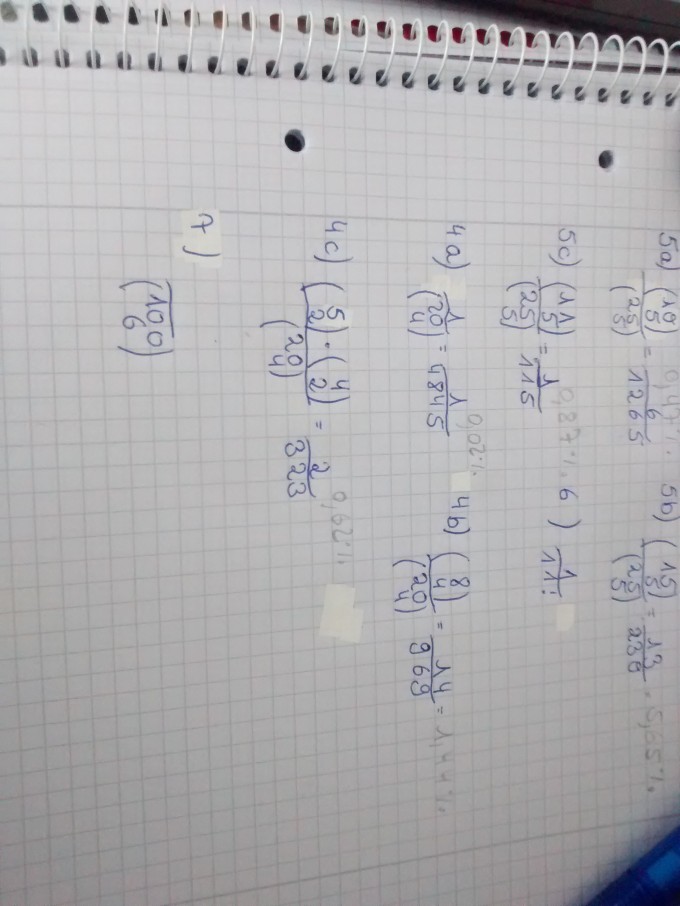 5a) (10 5)/(25 5) = 6/1265 0,47% 5b) (15 5)/(25 5) = 13/230 = 5,65%
5c) (11 5)/(25 5) = 1/115 0,87% 6) 1/11!
4a) 1/(20 4) = 1/4845 0,02% 4b) (8 4)/(20 4) = 14/969 = 1,44%
4c) (5 2) · (4 2)/(20 4) = 2/323 0,62%
7)
(100 6)